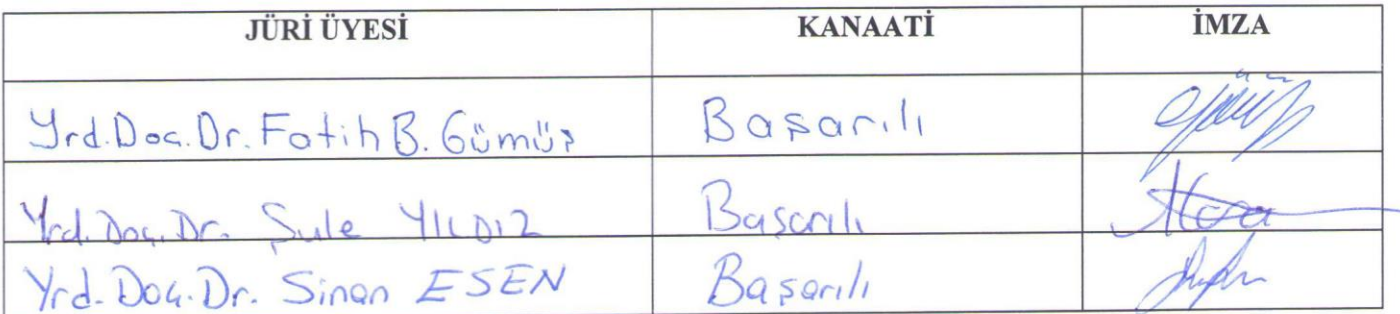 JÜRİ ÜYESİ KANAATİ İMZA
Yrd.Doç.Dr. Fatih B. Gümüş Başarılı
Yrd.Doç.Dr. Şule YILDIZ Başarılı
Yrd.Doç.Dr. Sinan ESEN Başarılı